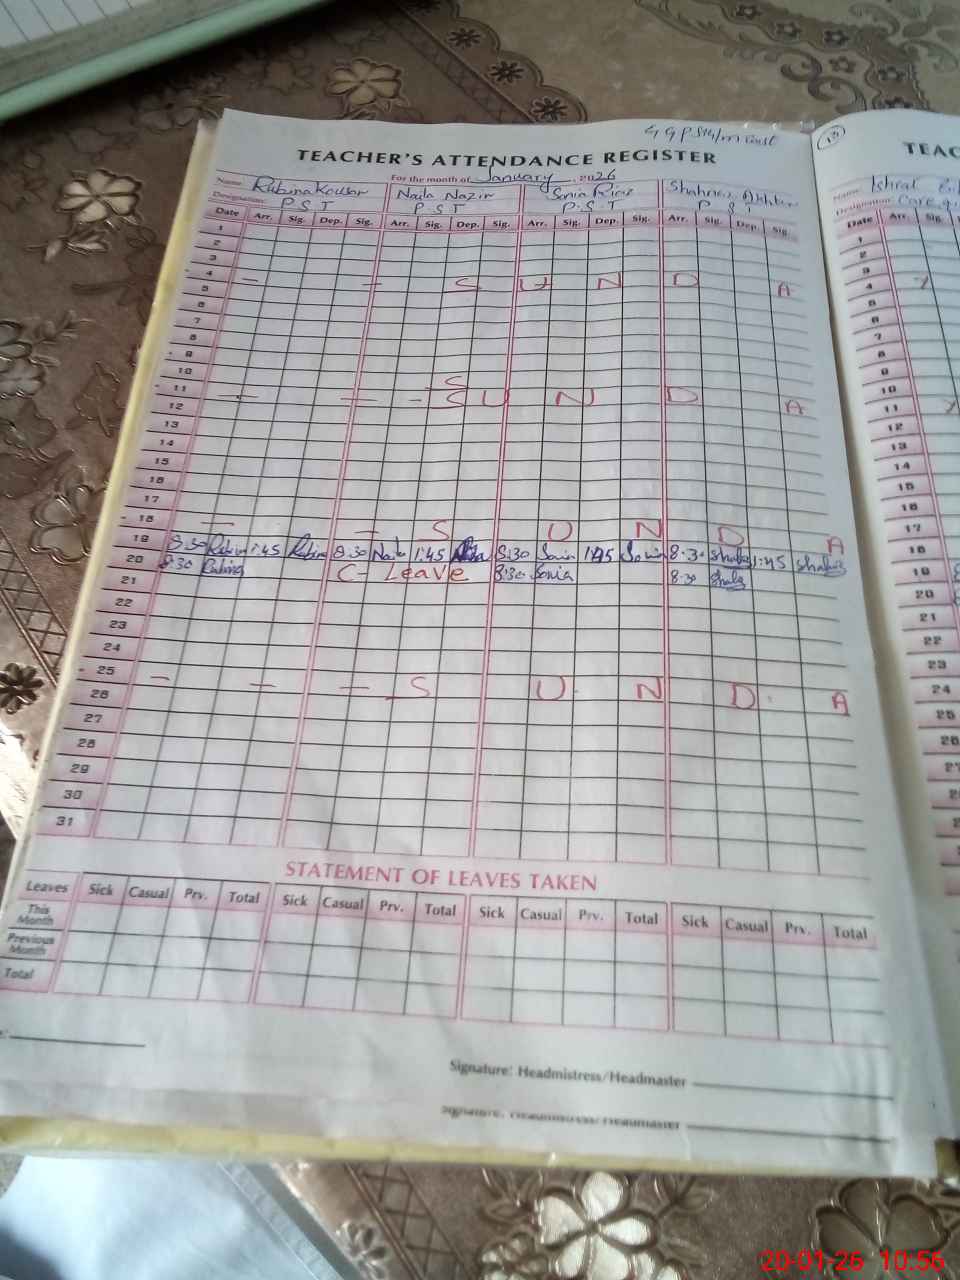 TEACHER'S ATTENDANCE REGISTER
For the month of January, 2026
Name: Rubina Kousar Naila Nazir Sonia Riaz Shahnaz Akhtar
Designation: P S T P S T P.S.T P S T
Date Arr. Sig. Dep. Sig. Arr. Sig. Dep. Sig. Arr. Sig. Dep. Sig. Arr. Sig. Dep. Sig.
1
2
3
4 S U N D A
5
6
7
8
9
10
11 S U N D A
12
13
14
15
16
17
18 S U N D A
19 8:30 Rubina 1:45 Rubina 8:30 Naila 1:45 Naila 8:30 Sonia 1:45 Sonia 8:30 Shahnaz 1:45 Shahnaz
20 8:30 Rubina C-Leave 8:30 Sonia 8:30 Shahnaz
21
22
23
24
25 S U N D A
26
27
28
29
30
31
STATEMENT OF LEAVES TAKEN
Leaves Sick Casual Prv. Total Sick Casual Prv. Total Sick Casual Prv. Total Sick Casual Prv. Total
This Month
Previous Month
Total
Signature: Headmistress/Headmaster
Signature: Headmistress/Headmaster
13
TEAC
Name: Ishrat
Designation:
Date Arr. Sig.
1
2
3
4
5
6
7
8
9
10
11
12
13
14
15
16
17
18
19
20
21
22
23
24
25
26
27
20-01-26 10:56